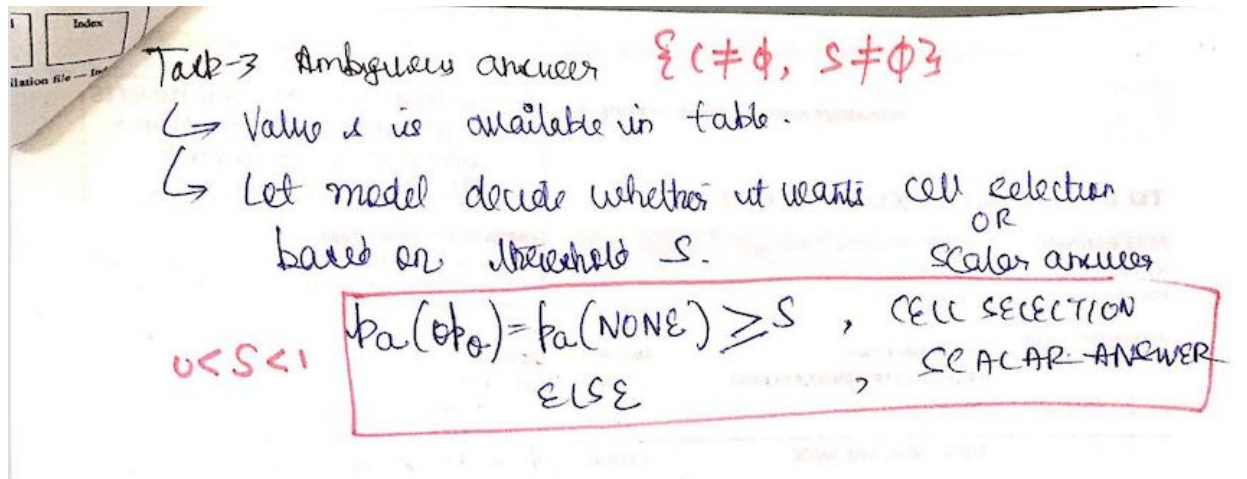 Index
ilation file — Ind
Task-3 Ambiguous answer {C≠ϕ, S≠ϕ}
↳ Value s is available in table.
↳ Let model decide whether it wants cell selection
OR
based on threshold S. scalar answer
pa(op₀) = pa(NONE) ≥ S , CELL SELECTION
0<S<1
ELSE , SCALAR ANSWER